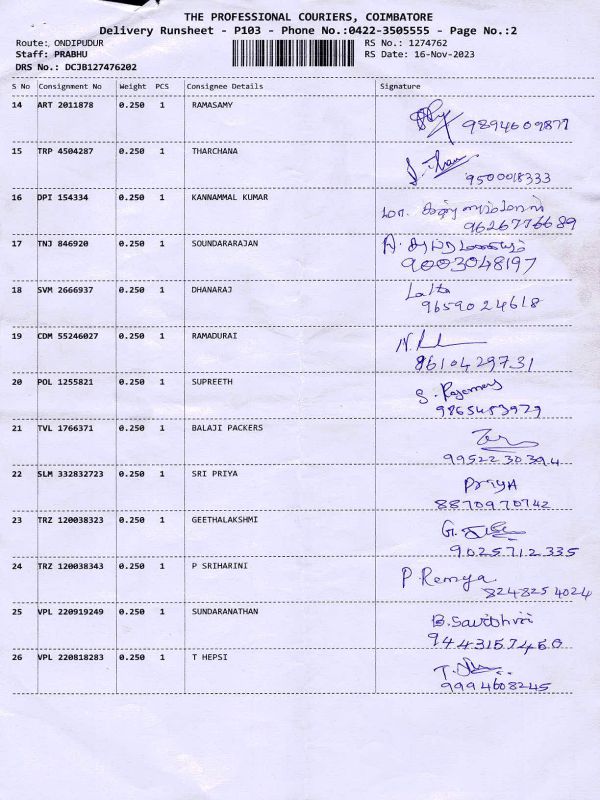 THE PROFESSIONAL COURIERS, COIMBATORE
Delivery Runsheet - P103 - Phone No.:0422-3505555 - Page No.:2
Route: ONDIPUDUR RS No.: 1274762
Staff: PRABHU RS Date: 16-Nov-2023
DRS No.: DCJB127476202
S No Consignment No Weight PCS Consignee Details Signature
14 ART 2011878 0.250 1 RAMASAMY
9894609877
15 TRP 4504287 0.250 1 THARCHANA
9500018333
16 DPI 154334 0.250 1 KANNAMMAL KUMAR
9626776689
17 TNJ 846920 0.250 1 SOUNDARARAJAN
9003048197
18 SVM 2666937 0.250 1 DHANARAJ
Lalta
9659024618
19 CDM 55246027 0.250 1 RAMADURAI
8610429731
20 POL 1255821 0.250 1 SUPREETH
9865453979
21 TVL 1766371 0.250 1 BALAJI PACKERS
9952230394
22 SLM 332832723 0.250 1 SRI PRIYA
PriyA
8870970742
23 TRZ 120038323 0.250 1 GEETHALAKSHMI
9025712335
24 TRZ 120038343 0.250 1 P SRIHARINI
P Remya
8248254024
25 VPL 220919249 0.250 1 SUNDARANATHAN
B. Savithiri
9443157460
26 VPL 220818283 0.250 1 T HEPSI
9994608245